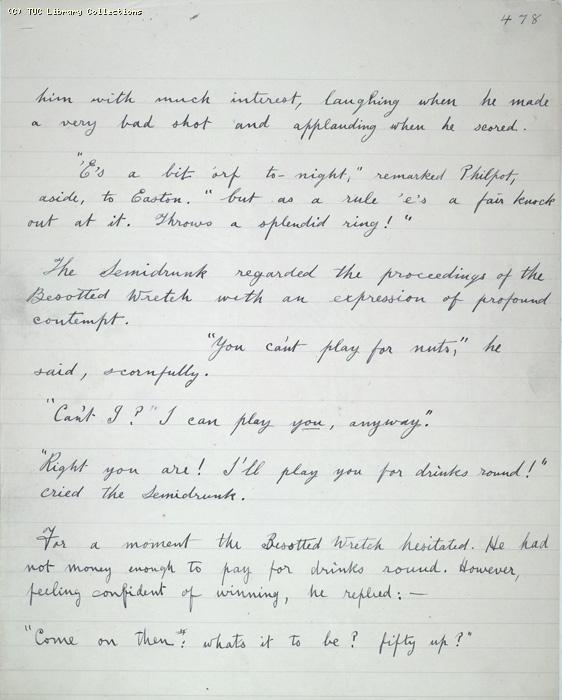 (C) TUC Library Collections
478
him with much interest, laughing when he made
a very bad shot and applauding when he scored.
"'E's a bit 'orf to-night," remarked Philpot,
aside, to Easton. "but as a rule 'e's a fair knock
out at it. Throws a splendid ring!"
The Semidrunk regarded the proceedings of the
Besotted Wretch with an expression of profound
contempt.
"You can't play for nuts," he
said, scornfully.
"Can't I?" I can play you, anyway."
"Right you are! I'll play you for drinks round!"
cried the Semidrunk.
For a moment the Besotted Wretch hesitated. He had
not money enough to pay for drinks round. However,
feeling confident of winning, he replied: —
"Come on then: whats it to be? fifty up?"